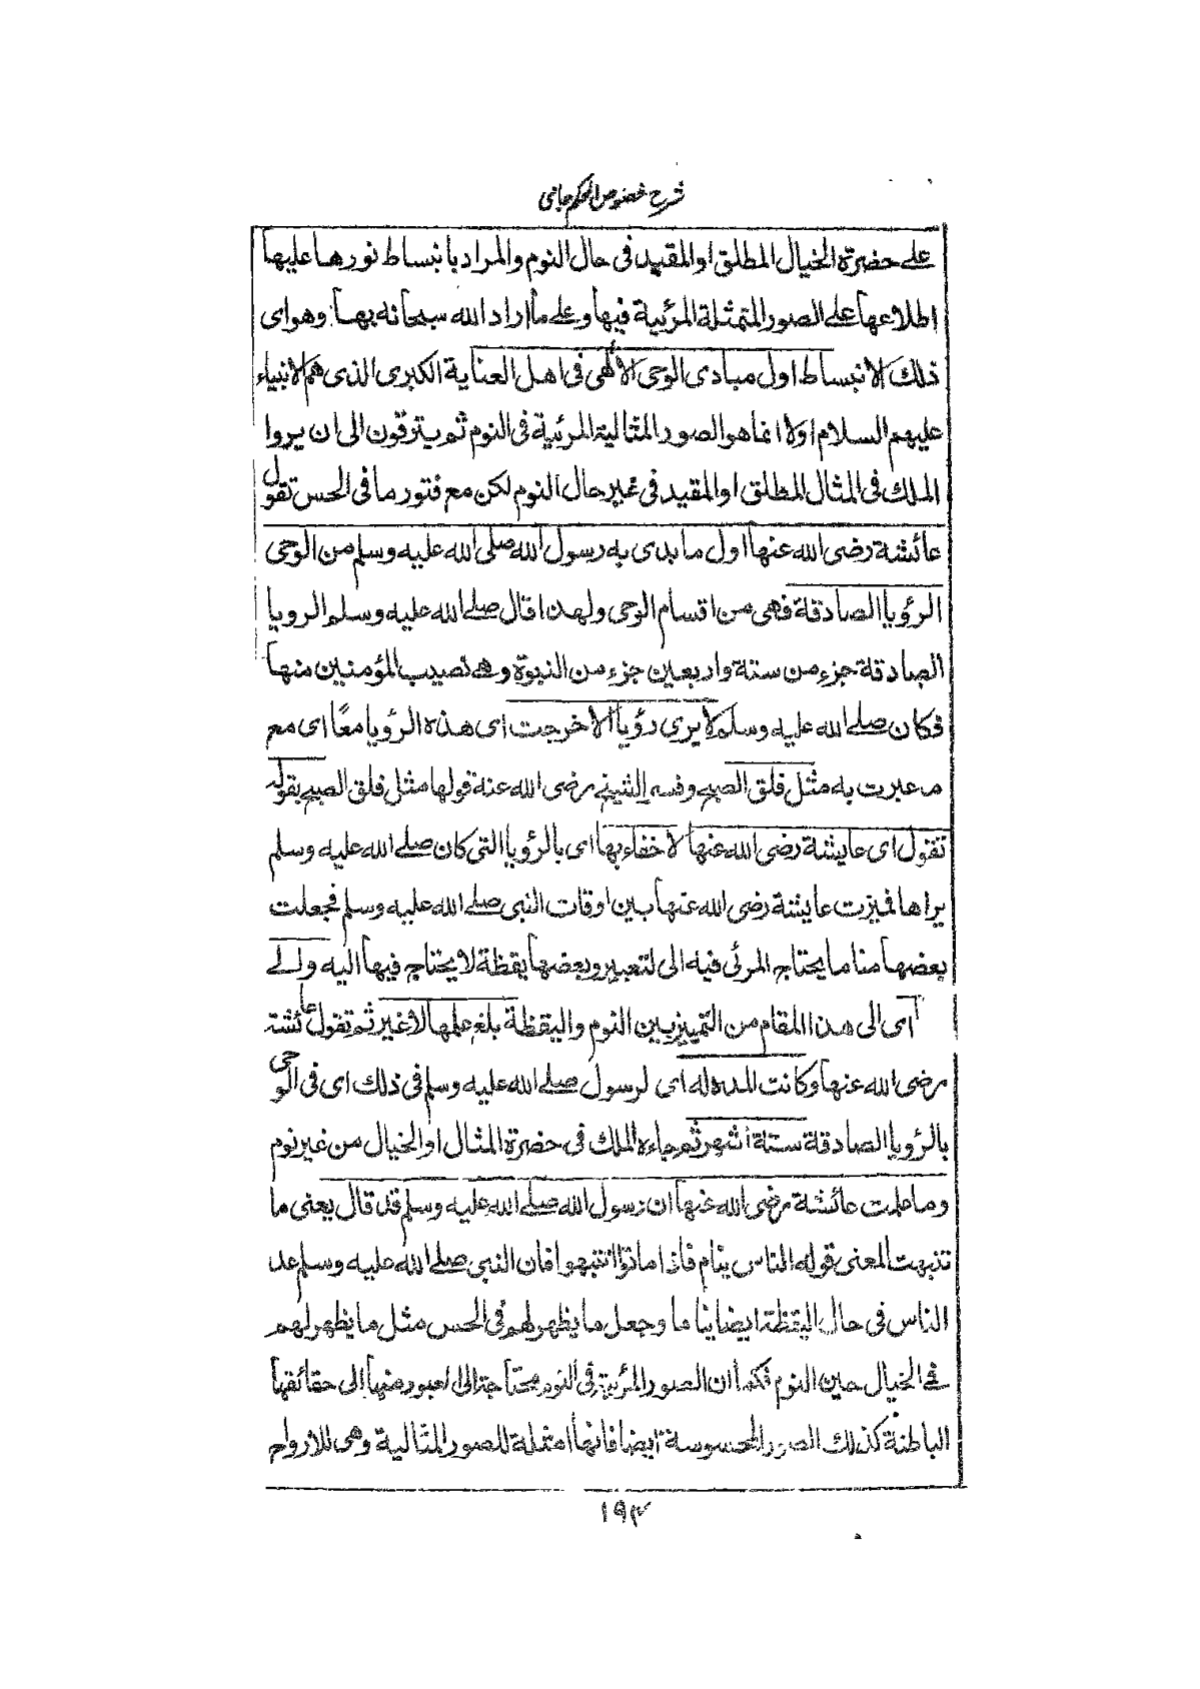 شرح فصوص الحكم جامی
على حضرة الخيال المطلق او المقيد فى حال النوم والمراد بانبساط نورها عليها
اطلاعها على الصور المتمثلة المرئية فيها وعلى ما اراد الله سبحانه بها وهو اى
ذلك الانبساط اول مبادى الوحى الالهى فى اهل العناية الكبرى الذى هم الانبياء
عليهم السلام اولا انما هو الصور المثالية المرئية فى النوم ثم يترقون الى ان يروا
الملك فى المثال المطلق او المقيد فى غير حال النوم لكن مع فتور ما فى الحس تقول
عائشة رضى الله عنها اول ما بدى به رسول الله صلى الله عليه وسلم من الوحى
الرؤيا الصادقة فهى من اقسام الوحى ولهذا قال صلى الله عليه وسلم الرويا
الصادقة جزء من ستة واربعين جزء من النبوة وهى نصيب المؤمنين منها
فكان صلى الله عليه وسلم لا يرى رؤيا الا خرجت اى هذه الرؤيا معًا اى مع
م عبرت به مثل فلق الصبح وفسر الشيخ رضى الله عنه قولها مثل فلق الصبح بقوله
تقول اى عايشة رضى الله عنها لا خفاء بها اى بالرؤيا التى كان صلى الله عليه وسلم
يراها فميزت عايشة رضى الله عنها بين اوقات النبى صلى الله عليه وسلم فجعلت
بعضها مناما يحتاج المرئى فيه الى لتعبير وبعضها يقظة لا يحتاج فيها اليه والى
اى الى هذا المقام من التمييز بين النوم واليقظة بلغ علمها لا غير ثم تقول عائشة
رضى الله عنها وكانت المدة له اى لرسول صلى الله عليه وسلم فى ذلك اى فى الوحى
بالرؤيا الصادقة ستة اشهر ثم جاءه الملك فى حضرة المثال او الخيال من غير نوم
وما علمت عائشة رضى الله عنها ان رسول الله صلى الله عليه وسلم قد قال يعنى ما
تنبهت لمعنى قوله الناس ينام فاذا ماتوا انتبهوا فان النبى صلى الله عليه وسلم عد
الناس فى حال اليقظة ايضا نياما وجعل ما يظهر لهم فى الحس مثل ما يظهر لهم
فى الخيال حين النوم فكما ان الصور المرئية فى النوم محتاجة الى العبور منها الى حقائقها
الباطنة كذلك الصور المحسوسة ايضا فانها امثلة للصور المثالية وهى للارواح
١٩٣